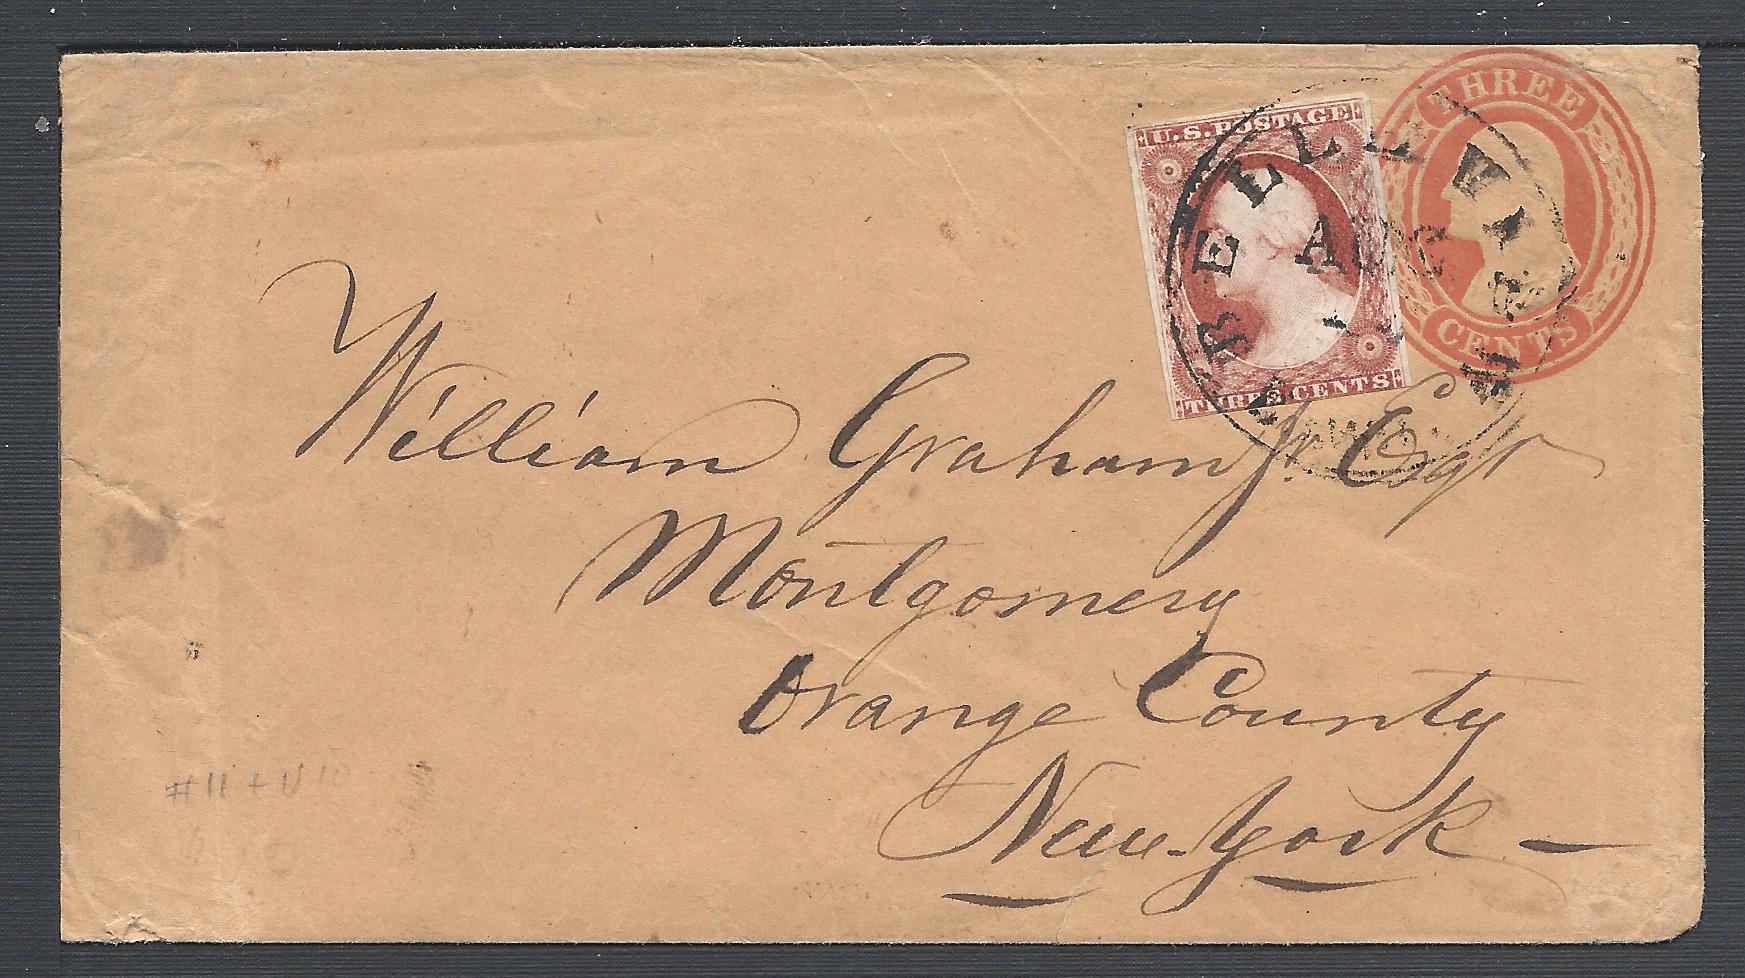 THREE
CENTS
U.S. POSTAGE
THREE CENTS
BELLEVILLE
AUG
William Graham Jr. Esqr
Montgomery
Orange County
New-York
#11 + U10